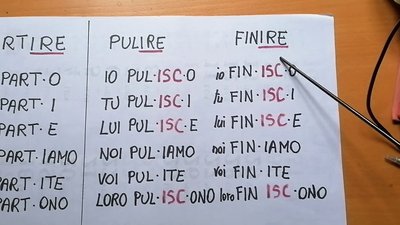 RTIRE PULIRE FINIRE
PART·O IO PUL·ISC·O io FIN·ISC·O
PART·I TU PUL·ISC·I tu FIN·ISC·I
PART·E LUI PUL·ISC·E lui FIN·ISC·E
PART·IAMO NOI PUL·IAMO noi FIN·IAMO
PART·ITE VOI PUL·ITE voi FIN·ITE
PART·ONO LORO PUL·ISC·ONO loro FIN ISC·ONO